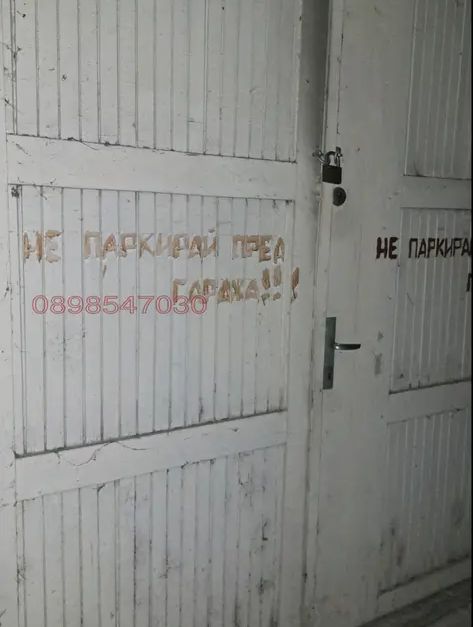 НЕ ПАРКИРАЙ ПРЕД
ГАРАЖА!!!
0898547030
НЕ ПАРКИРА